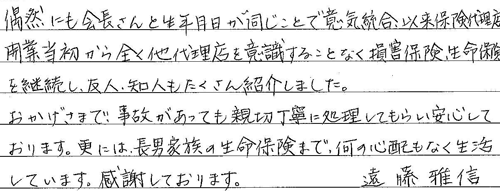 偶然にも会長さんと生年月日が同じことで意気統合、以来保険代理店
開業当初から全く他代理店を意識することなく損害保険、生命保険
を継続し、友人、知人もたくさん紹介しました。
おかげさまで、事故があっても親切丁寧に処理してもらい安心して
おります。更には、長男家族の生命保険まで、何の心配もなく生活
しています。感謝しております。 遠藤雅信